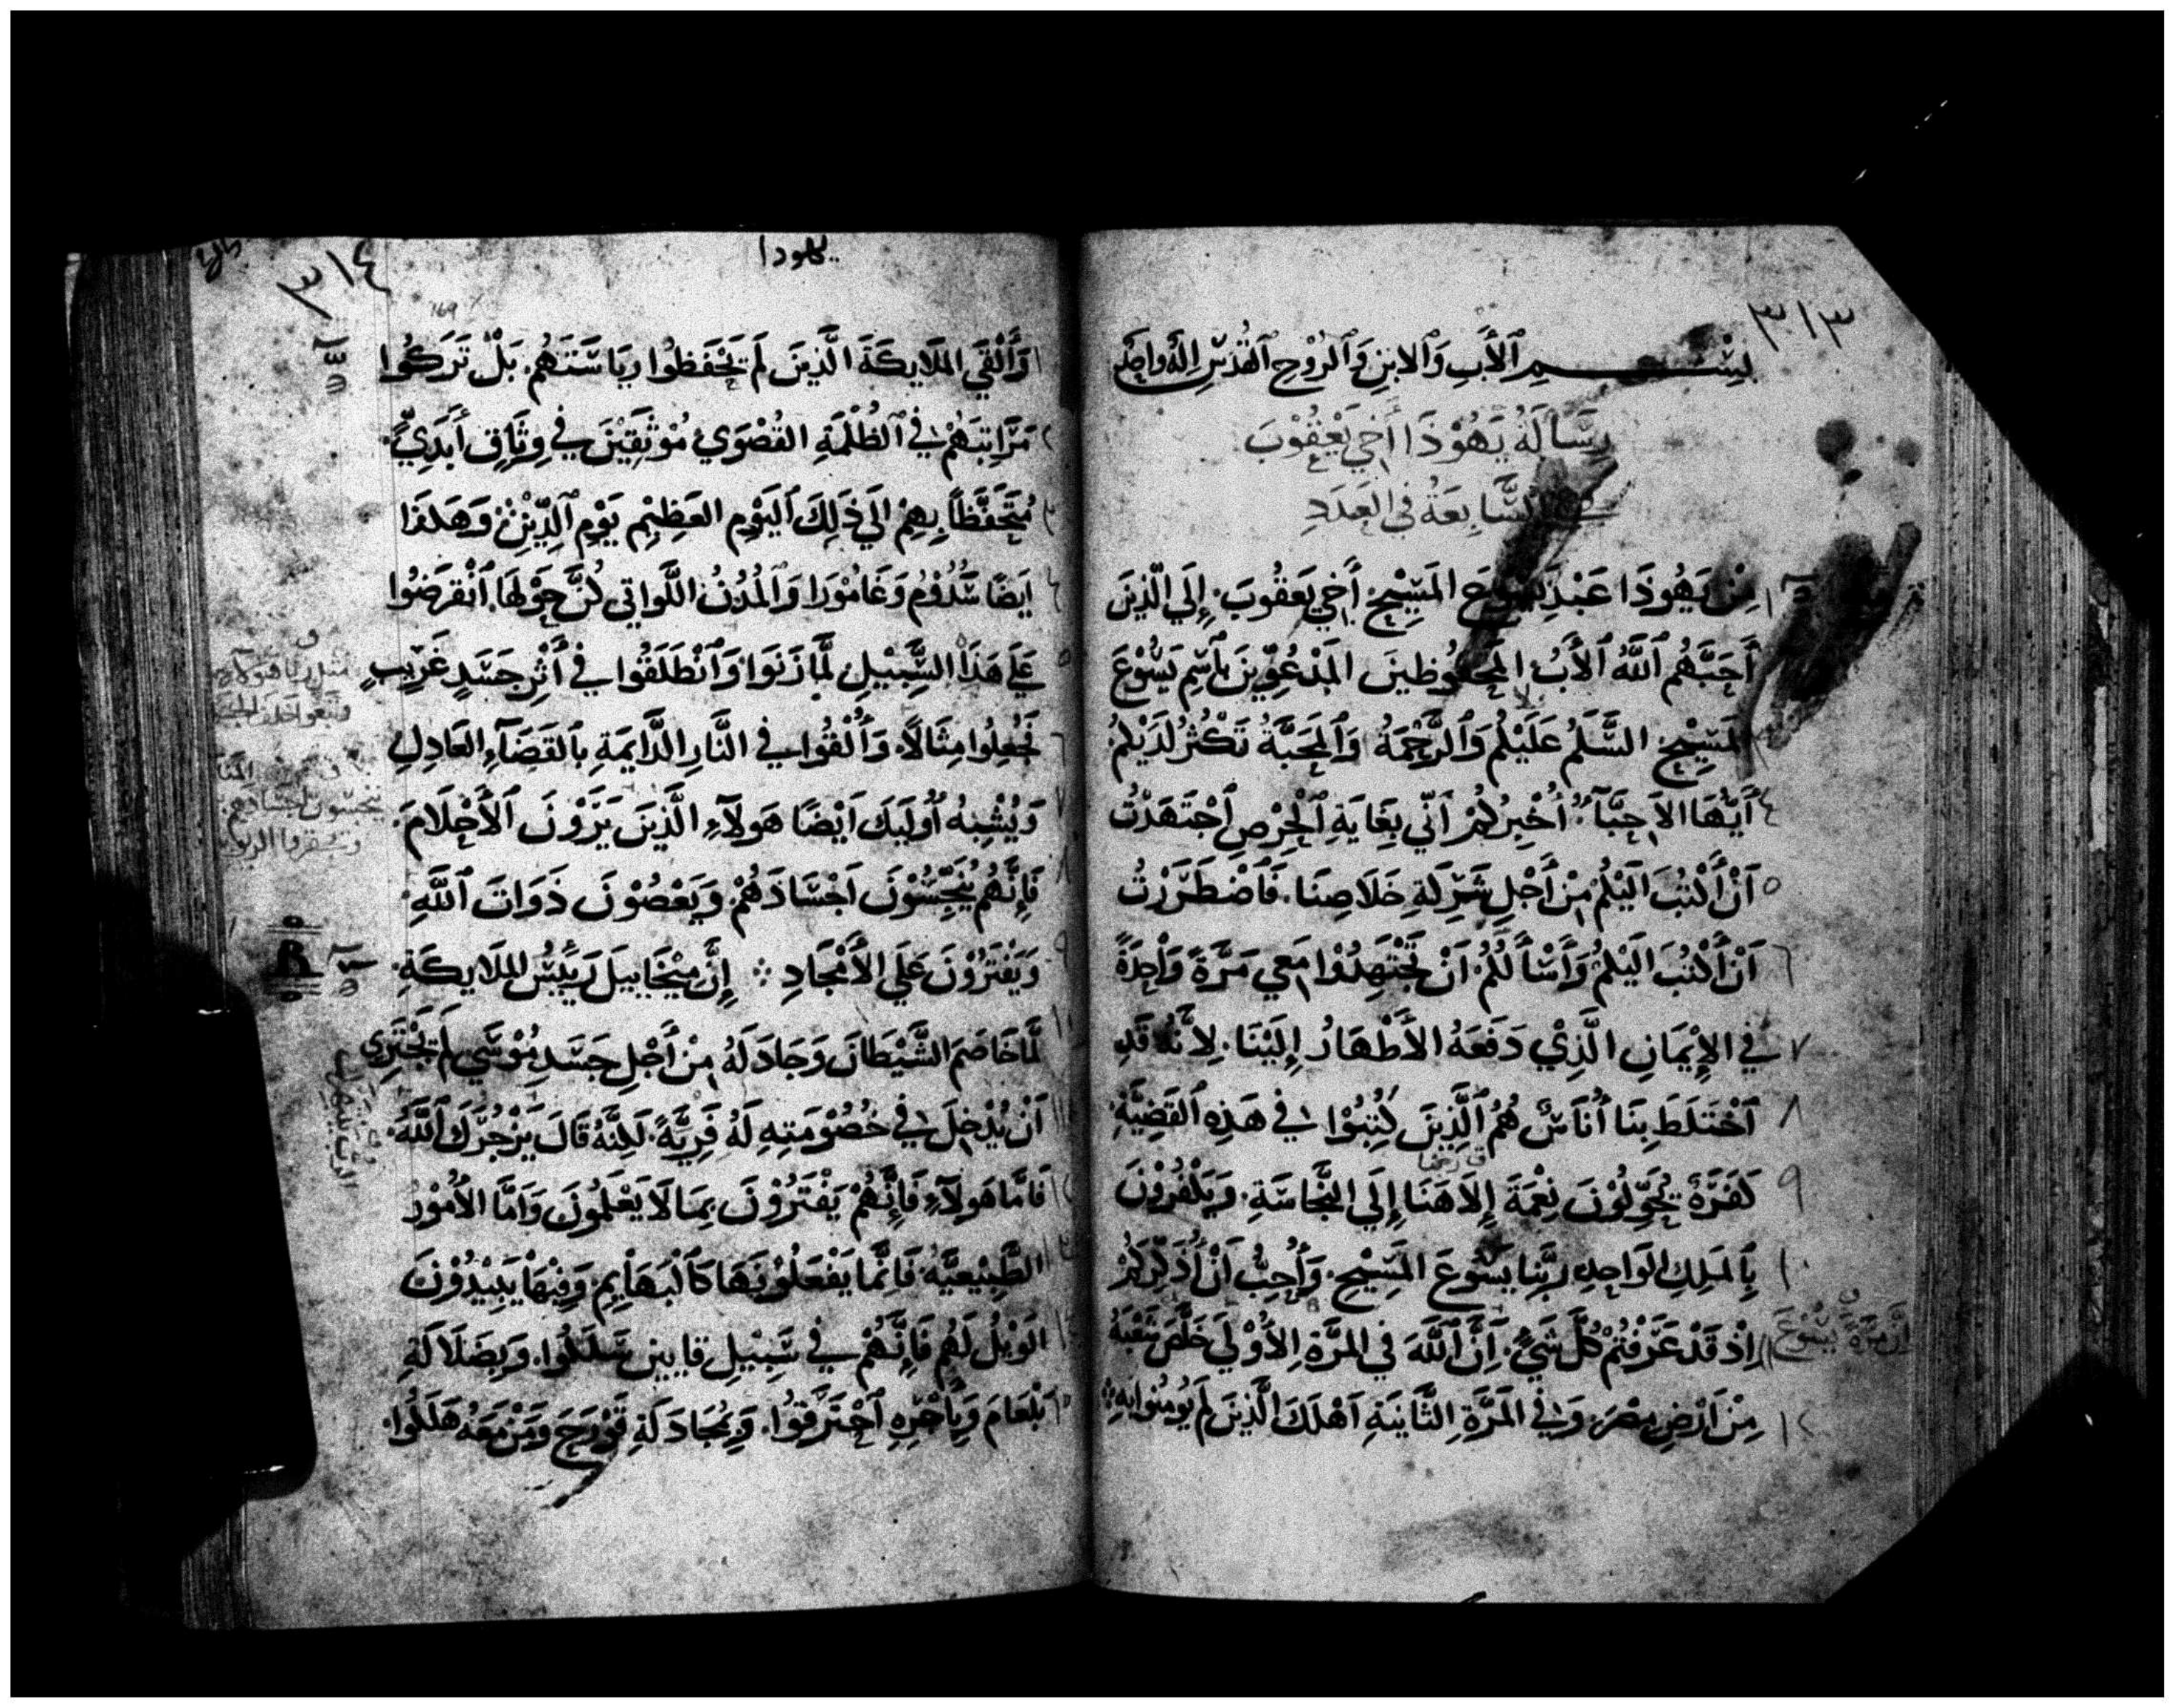 ٣١٣
بِسْمِ ٱلْأَبِ وَٱلابنِ وَٱلرُّوْحِ ٱلقُدُسِ اِلَهٌ وَاحِدٌ
رِسَالَةُ يَهُوْذَا أَخِي يَعْقُوْبَ
السَّابِعَةُ فِي العَدَدِ
١ مِنْ يَهُوذَا عَبْدِ يسوع المَسِيْحِ أَخِي يَعقُوبَ. إِلَي الَّذِينَ
أَحَبَّهُم ٱللَّهُ ٱلأَبُ المَحفُوظِينَ المَدْعُوِّينَ بِٱسْمِ يَسُوْعَ
المَسِيْحِ السَّلَمُ عَلَيْكُم وَٱلرَّحْمَةُ وَٱلمَحَبَّةُ تَكْثُرُ لَدَيْكُم
٤ أَيُّهَا الاَحِبَّآءُ أُخْبِرُكُمْ اَنّي بِغَايَةِ ٱلْحِرْصِ ٱجْتَهَدْتُ
٥ اَنْ أَكْتُبَ اِلَيْكُم مِنْ أَجْلِ شَرِكَةِ خَلَاصِنَا. فَٱضْطَرَرْتُ
٦ اَنْ أَكْتُبَ اِلَيْكُم وَأَسْأَلُكُمْ اَنْ تَجْتَهِدُوْا مَعِي مَرَّةً وَاْحِدَةً
٧ فِي الإِيْمَانِ الَّذِيْ دَفَعَهُ الأَطْهَارُ إِلَيْنَا. لِاَنَّهُ قَدِ
٨ ٱخْتَلَطَ بِنَا أُنَاسٌ هُمُ ٱلَّذِينَ كُتِبُوْا فِي هَذِهِ ٱلقَضِيَّةِ
٩ كَفَرَةً يُحَوِّلُوْنَ نِعْمَةَ إِلَاهَنَا إِلَي النَّجَاسَةِ. وَيَكْفُرُوْنَ
١٠ بِٱلمَلِكِ الوَاحِدِ رَبِّنا يَسُوْعَ المَسِيْحِ. وَأُحِبُّ اَنْ أُذَكِّرَكُمْ
١١ اِذْ قَدْ عَرَفْتُمْ كُلَّ شَيٍ. اَنَّ ٱللَّهَ فِي المَرَّةِ الأُوْلَي خَلَّصَ شَعْبَهُ
١٢ مِنْ اَرْضِ مِصْرَ. وَفِي المَرَّةِ الثَّانِيَةِ اَهْلَكَ الَّذِينَ لَم يُومِنُوا بِهِ
٣١٤
يهودا
١ وَأَلْقَي المَلَايكَةَ الَّذِينَ لَم يَحْفَظُوا رِيَاسَتَهُم. بَلْ تَرَكُوا
٢ مَرَاتِبَهُمْ فِي ٱلظُلْمَةِ القُصْوَي مُوْثَقِيْنَ فِي وِثَاقٍ أَبَدِيٍّ.
٣ مُتَحَفَّظًا بِهِمْ اِلَي ذَلِكَ ٱليَوْمِ العَظِيْمِ يَوْمِ ٱلدِّيْنِ وَهَكَذَا
٤ اَيضًا سُدُوْمُ وَغَامُوْرَا وَٱلمُدُنُ اللَّوَاتِي كُنَّ حَوْلَهَا. ٱنْقَرَضُوا
٥ عَلَي هَذَا السَّبِيْلِ لَمَّا زَنَوا وَٱنْطَلَقُوا فِي أَثْرِ جَسَدٍ غَرِيبٍ
٦ فَجُعِلُوا مِثَالاً. وَأُلْقُوا فِي النَّارِ الدَّايِمَةِ بِٱلقَضَآءِ العَادِلِ
٧ وَيُشْبِهُ أُوْلَيِكَ اَيْضًا هَوُلَآءِ الَّذِينَ يَرَوْنَ ٱلأَحْلَامَ.
٨ فَاِنَّهُم يُنَجِّسُوْنَ اَجْسَادَهُمْ. وَيَعْصُوْنَ ذَوَاتَ ٱللَّهِ.
٩ وَيَفْتَرُوْنَ عَلَي الأَمْجَادِ ⁘ إِنَّ مِيْخَايِيلَ رَيِّسَ المَلَايكَةِ
١٠ لَمَّا خَاصَمَ الشَّيْطَانَ وَجَادَلَهُ مِنْ أَجْلِ جَسَدِ مُوْسَي لَم يَجْتَرِي
١١ اَنْ يُدْخِلَ فِي خُصُوْمَتِهِ لَهُ فَرِيَّةً. لَكِنَّهُ قَالَ يَزْجُرَكَ ٱللَّهُ.
١٢ فَاَمَّا هَوُلَآءِ فَاِنَّهُمْ يَفْتَرُوْنَ بِمَا لَا يَعْلَمُونَ وَاَمَّا الأُمُوْرُ
١٣ الطَّبِيْعيَّةُ فَاِنَّمَا يَفْعَلُوْنَهَا كَٱلْبَهَايِمِ. وَفِيْهَا يَبِيْدُوْنَ
١٤ الوَيْلُ لَهُم فَاِنَّهُمْ فِي سَبِيْلِ قَايِينَ سَلَكُوا. وَبِضَلَالَةِ
١٥ بَلْعَامَ وَبِأَجْرِهِ ٱحْتَرَقُوْا. وَبِمُجَادَلَةِ قُوْرَحَ وَمَنْ مَعَهُ هَلَكُوا.